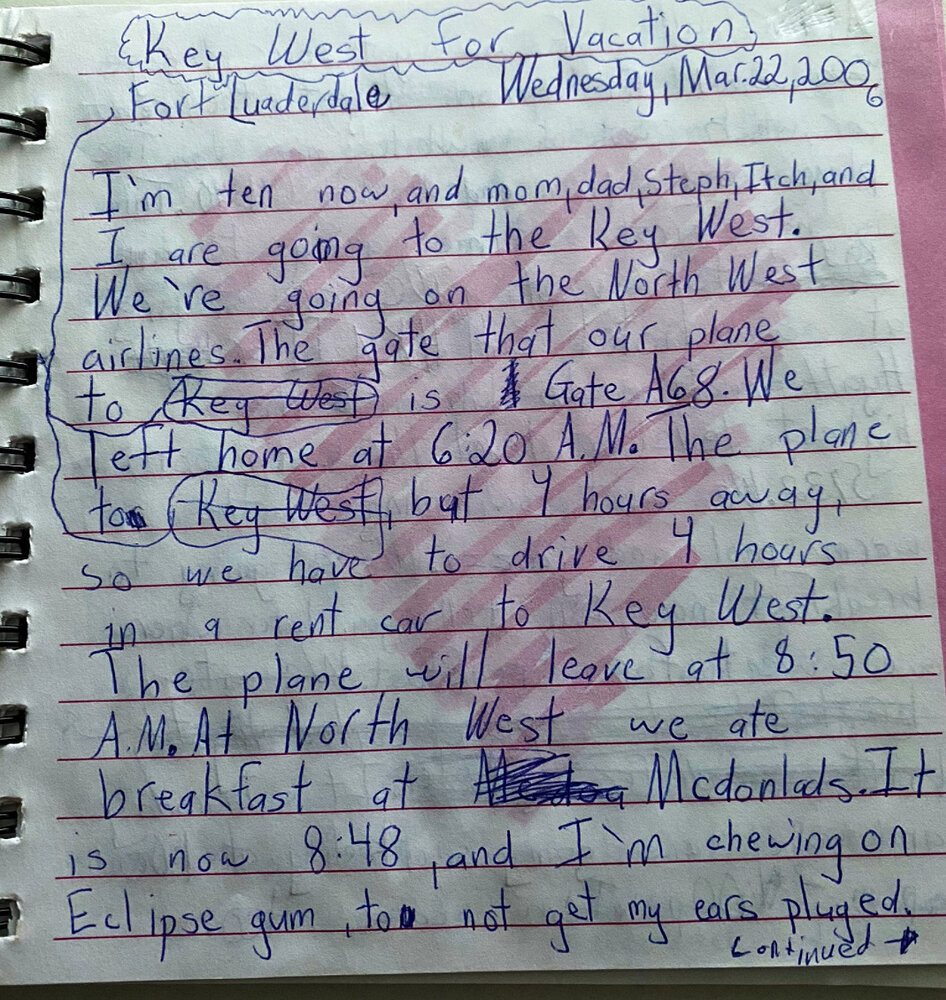 Key West for Vacation
Fort Luaderdale Wednesday, Mar.22,2006
I'm ten now, and mom, dad, Steph, Itch, and
I are going to the Key West.
We're going on the North West
airlines. The gate that our plane
to Key West is Gate A68. We
left home at 6:20 A.M. The plane
to Key West, but 4 hours away,
so we have to drive 4 hours
in a rent car to Key West.
The plane will leave at 8:50
A.M. At North West we ate
breakfast at Mcdonlads. It
is now 8:48, and I'm chewing on
Eclipse gum, to not get my ears pluged.
Continued →